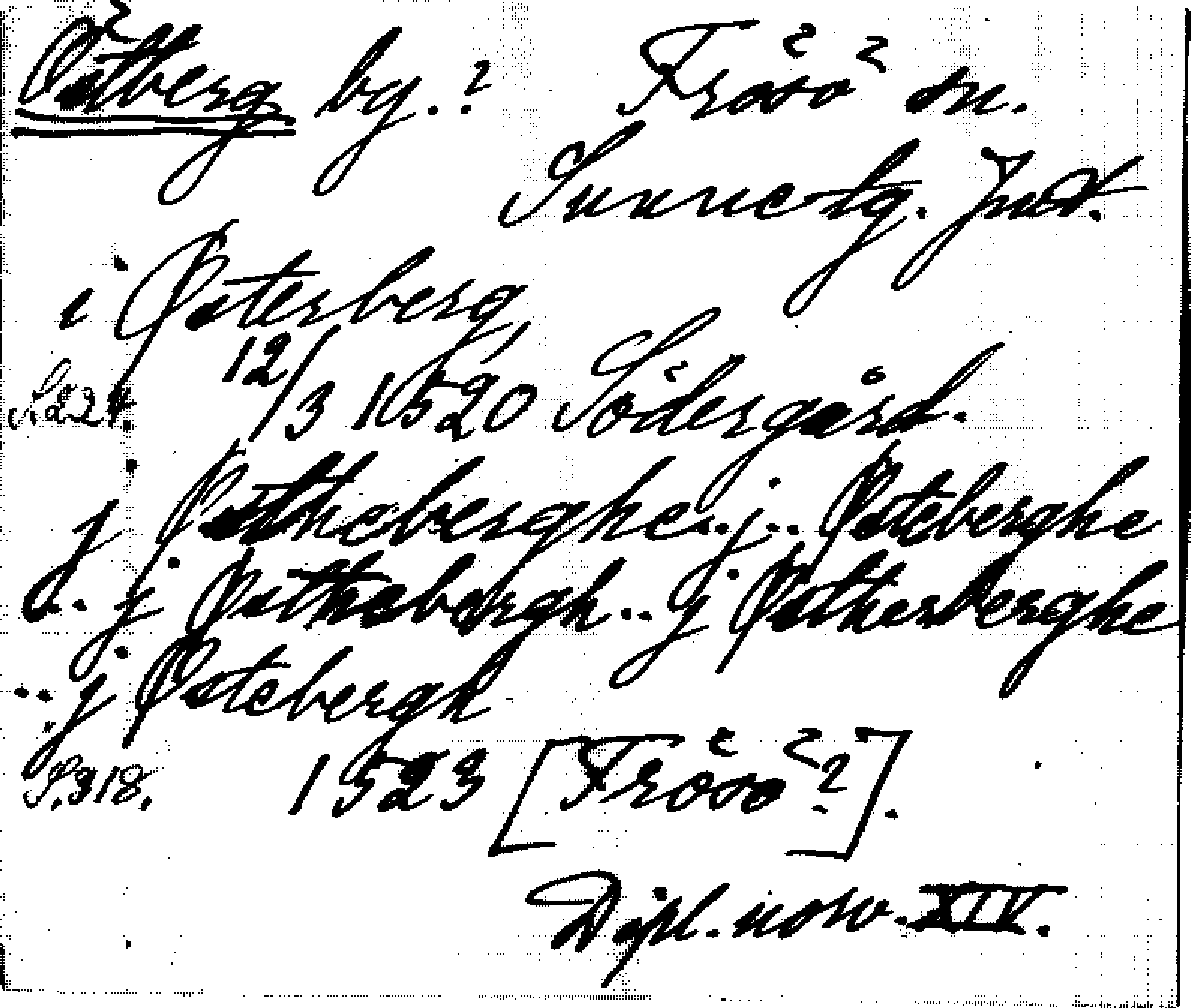 Östberg bg.? Frösö sn.
Sunne tg. Jmtl.
i Østerberg
S.224. 12/3 1520 Södergård.
j Østheberghe..j.. Østeberghe
o.. j Østhebergh.. j Østherberghe
.. j Østebergh
S.318. 1523 [Frösö?].
Dipl. norv. XIV.